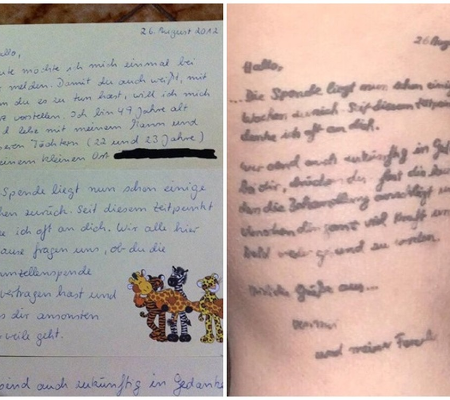 26. August 2012
allo,
ute möchte ich mich einmal bei
melden. Damit du auch weißt, mit
m du es zu tun hast, will ich mich
vorstellen. Ich bin 49 Jahre alt
d lebe mit meinem Mann und
eren Töchtern (22 und 23 Jahre)
einem kleinen Ort
Spende liegt nun schon einige
hen zurück. Seit diesem Zeitpunkt
e ich oft an dich. Wir alle hier
ause fragen uns, ob du die
mmzellenspende
vertragen hast und
s dir ansonsten
rweile geht.
end auch zukünftig in Gedanke
26 Aug
Hallo,
... Die Spende liegt nun schon eini
Wochen zurück. Seit diesem Zeitpun
denke ich oft an dich.
wir sind auch zukünftig in Ged
bei dir,
die Behandlung
wünschen dir ganz viel Kraft um
bald wieder gesund zu werden.
Grüße aus...
und meiner Famili